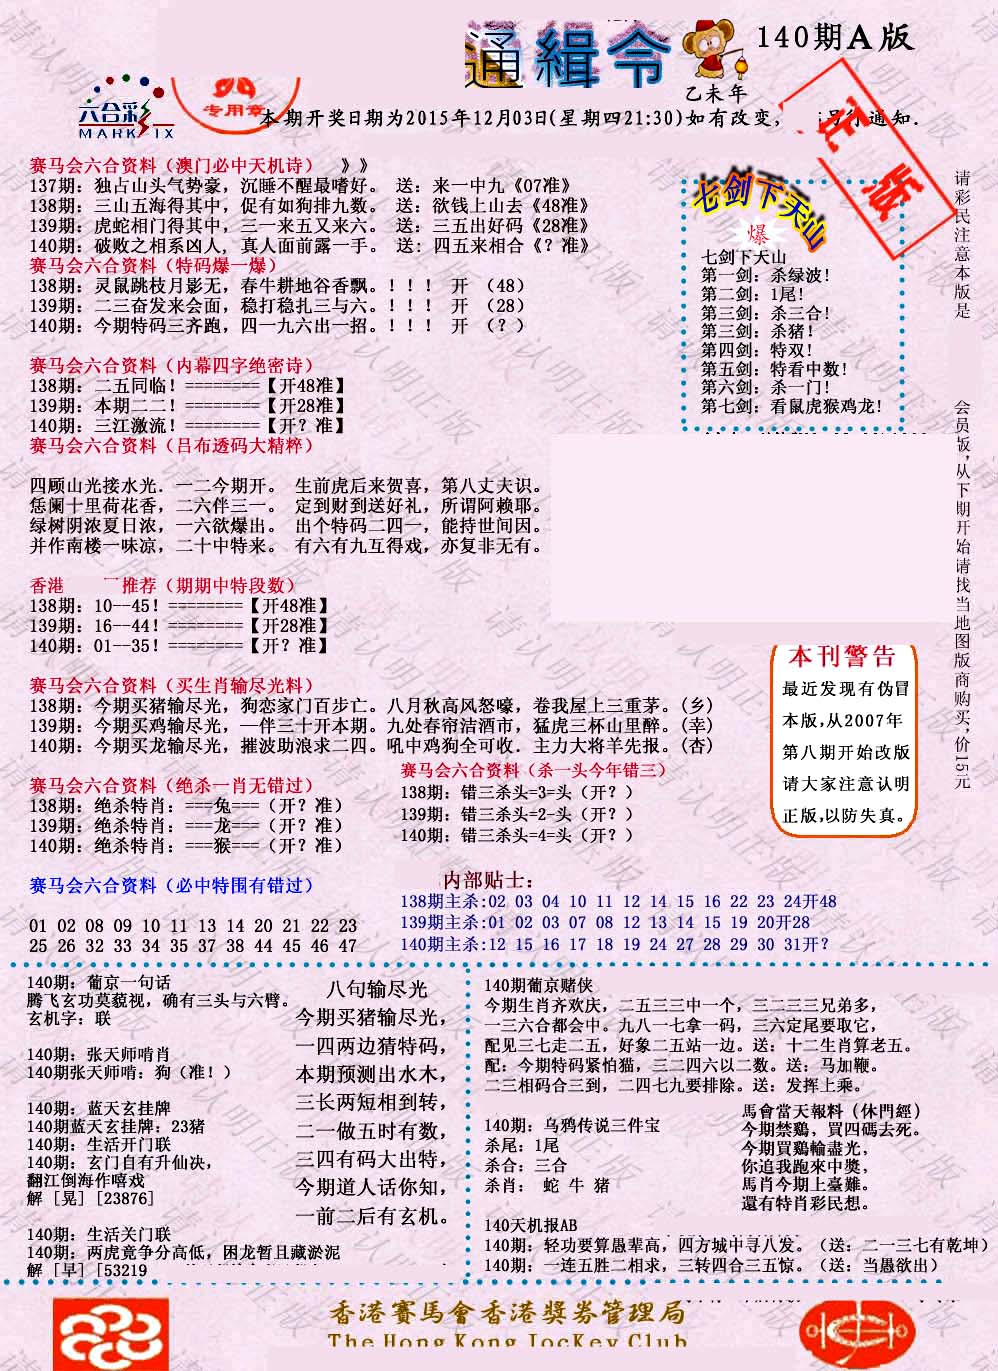 通緝令
140期A版
乙未年
六合彩
MARK SIX
专用章
本期开奖日期为2015年12月03日(星期四21:30)如有改变,
通知.
正版
赛马会六合资料（澳门必中天机诗） 》》
137期: 独占山头气势豪, 沉睡不醒最嗜好。 送: 来一中九《07准》
138期: 三山五海得其中, 促有如狗排九数。 送: 欲钱上山去《48准》
139期: 虎蛇相门得其中, 三一来五又来六。 送: 三五出好码《28准》
140期: 破败之相系凶人, 真人面前露一手。 送: 四五来相合《？准》
赛马会六合资料（特码爆一爆）
138期: 灵鼠跳枝月影无, 春牛耕地谷香飘。！！！ 开 （48）
139期: 二三奋发来会面, 稳打稳扎三与六。！！！ 开 （28）
140期: 今期特码三齐跑, 四一九六出一招。！！！ 开 （？）
赛马会六合资料（内幕四字绝密诗）
138期: 二五同临！========【开48准】
139期: 本期二二！========【开28准】
140期: 三江激流！========【开？准】
赛马会六合资料（吕布透码大精粹）
四顾山光接水光. 一二今期开。 生前虎后来贺喜, 第八丈夫识。
恁阑十里荷花香, 二六伴三一。 定到财到送好礼, 所谓阿赖耶。
绿树阴浓夏日浓, 一六欲爆出。 出个特码二四一, 能持世间因。
并作南楼一味凉, 二十中特来。 有六有九互得戏, 亦复非无有。
七剑下天山
爆
七剑下天山
第一剑: 杀绿波!
第二剑: 1尾!
第三剑: 杀三合!
第三剑: 杀猪!
第四剑: 特双!
第五剑: 特看中数!
第六剑: 杀一门!
第七剑: 看鼠虎猴鸡龙!
请彩民注意本版是
会员版,从下期开始请找当地图版商购买,价15元
香港
推荐（期期中特段数）
138期: 10--45！========【开48准】
139期: 16--44！========【开28准】
140期: 01--35！========【开？准】
赛马会六合资料（买生肖输尽光料）
138期: 今期买猪输尽光, 狗恋家门百步亡。八月秋高风怒嚎, 卷我屋上三重茅。(乡)
139期: 今期买鸡输尽光, 一伴三十开本期。九处春帘洁酒市, 猛虎三杯山里醉。(幸)
140期: 今期买龙输尽光, 摧波助浪求二四。吼中鸡狗全可收. 主力大将羊先报。(杏)
本刊警告
最近发现有伪冒
本版,从2007年
第八期开始改版
请大家注意认明
正版,以防失真。
赛马会六合资料（绝杀一肖无错过）
138期: 绝杀特肖: ===兔===（开？准）
139期: 绝杀特肖: ===龙===（开？准）
140期: 绝杀特肖: ===猴===（开？准）
赛马会六合资料（杀一头今年错三）
138期: 错三杀头=3=头（开？）
139期: 错三杀头=2-头（开？）
140期: 错三杀头=4=头（开？）
赛马会六合资料（必中特围有错过）
01 02 08 09 10 11 13 14 20 21 22 23
25 26 32 33 34 35 37 38 44 45 46 47
内部贴士:
138期主杀:02 03 04 10 11 12 14 15 16 22 23 24开48
139期主杀:01 02 03 07 08 12 13 14 15 19 20开28
140期主杀:12 15 16 17 18 19 24 27 28 29 30 31开？
140期: 葡京一句话
腾飞玄功莫藐视, 确有三头与六臂。
玄机字: 联
140期: 张天师啃肖
140期张天师啃: 狗（准！）
140期: 蓝天玄挂牌
140期蓝天玄挂牌: 23猪
140期: 生活开门联
140期: 玄门自有升仙决,
翻江倒海作嘻戏
解 [晃] [23876]
140期: 生活关门联
140期: 两虎竟争分高低, 困龙暂且藏淤泥
解 [早] [53219
八句输尽光
今期买猪输尽光,
一四两边猜特码,
本期预测出水木,
三长两短相到转,
二一做五时有数,
三四有码大出特,
今期道人话你知,
一前二后有玄机。
140期葡京赌侠
今期生肖齐欢庆, 二五三三中一个, 三二三三兄弟多,
一三六合都会中。九八一七拿一码, 三六定尾要取它,
配见三七走二五, 好象二五站一边。送: 十二生肖算老五。
配: 今期特码紧怕猫, 三二四六以二数。送: 马加鞭。
二三相码合三到, 二四七九要排除。送: 发挥上乘。
140期: 乌鸦传说三件宝
杀尾: 1尾
杀合: 三合
杀肖: 蛇 牛 猪
馬會當天報料（休門經）
今期禁鷄, 買四碼去死。
今期買鷄輸盡光,
你追我跑來中獎,
馬肖今期上臺難。
還有特肖彩民想。
140天机报AB
140期: 轻功要算愚辈高, 四方城中寻八发。（送: 二一三七有乾坤）
140期: 一连五胜二相求, 三转四合三五惊。（送: 当愚欲出）
香港賽馬會香港獎券管理局
The Hong Kong Jockey Club